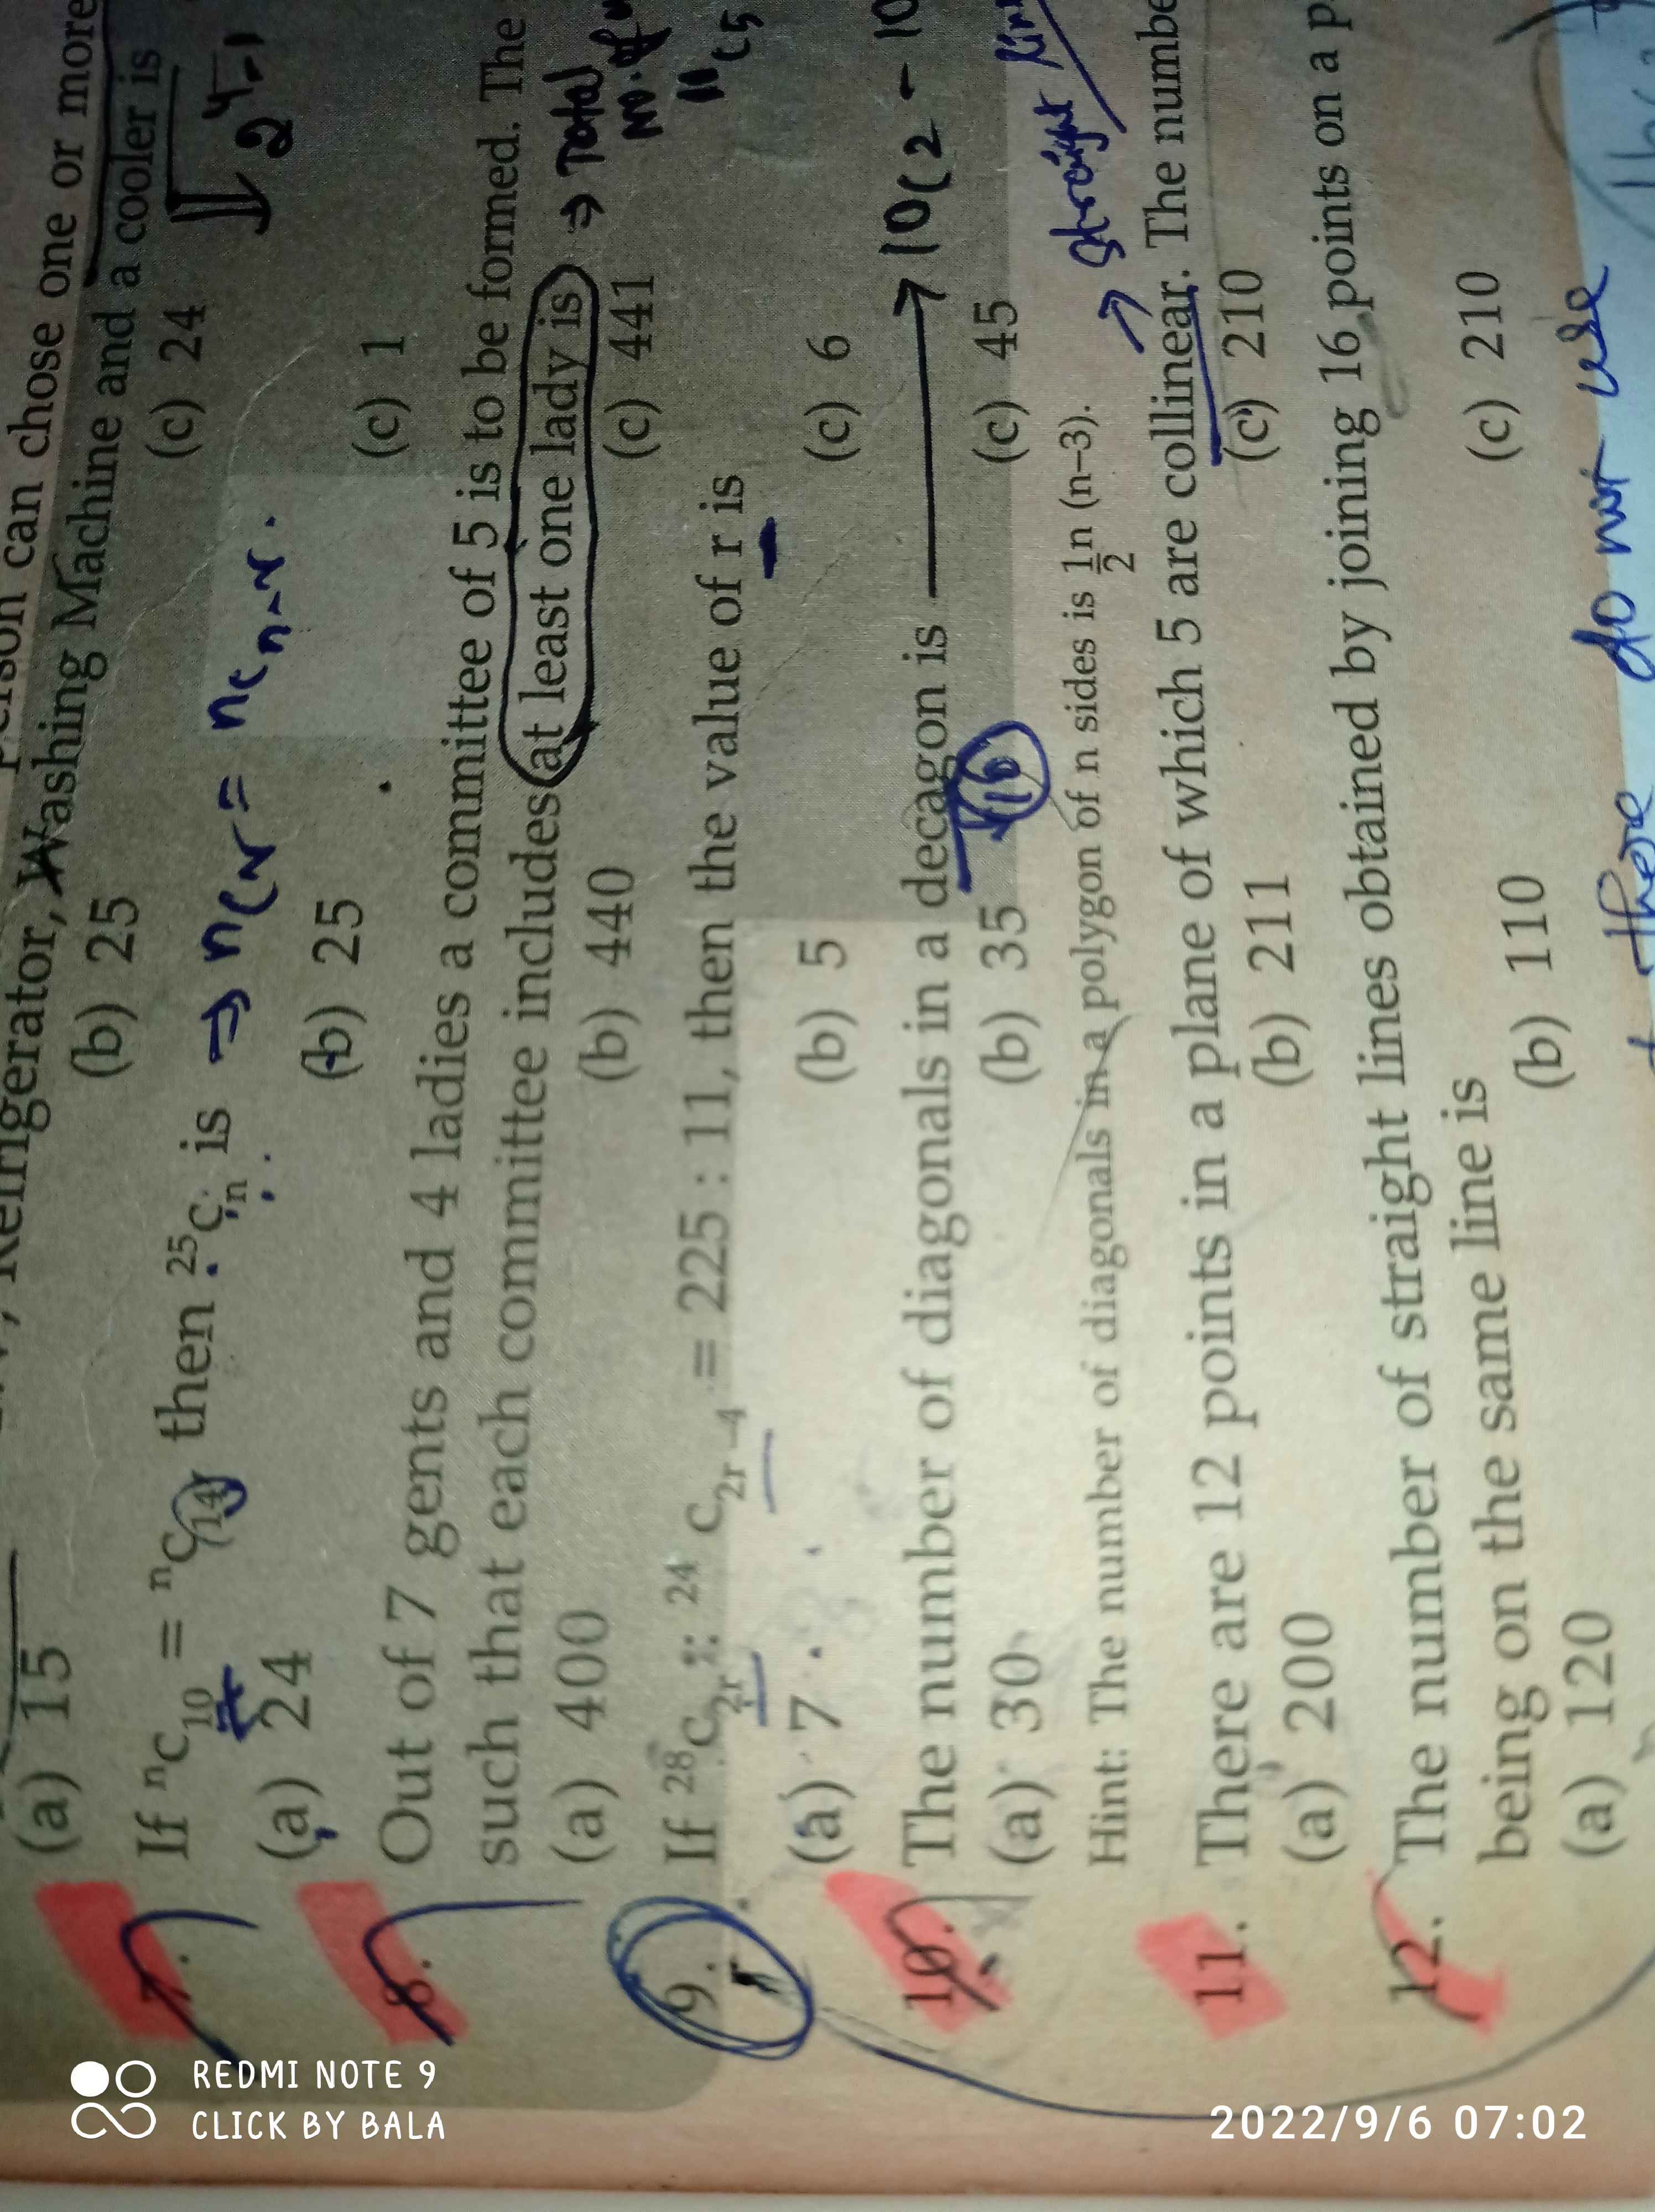 erson can chose one or more
Refrigerator, Washing Machine and a cooler is
(a) 15 (b) 25 (c) 24
2⁴-1
7. If ⁿc₁₀ = ⁿc₁₄ then ²⁵cₙ is ⇒ nCr = nCn-r.
(a) 24 (b) 25 (c) 1
8. Out of 7 gents and 4 ladies a committee of 5 is to be formed. The
such that each committee includes at least one lady is ⇒ Total
no. of
(a) 400 (b) 440 (c) 441
11C5
9. If ²⁸c₂ᵣ : ²⁴c₂ᵣ₋₄ = 225 : 11, then the value of r is
(a) 7 (b) 5 (c) 6
10. The number of diagonals in a decagon is → 10C2 - 10
10
(a) 30 (b) 35 (c) 45
Hint: The number of diagonals in a polygon of n sides is ½n (n–3).
straight line
11. There are 12 points in a plane of which 5 are collinear. The numbe
(a) 200 (b) 211 (c) 210
12. The number of straight lines obtained by joining 16 points on a p
being on the same line is
(a) 120 (b) 110 (c) 210
there do not use
REDMI NOTE 9
CLICK BY BALA
2022/9/6 07:02